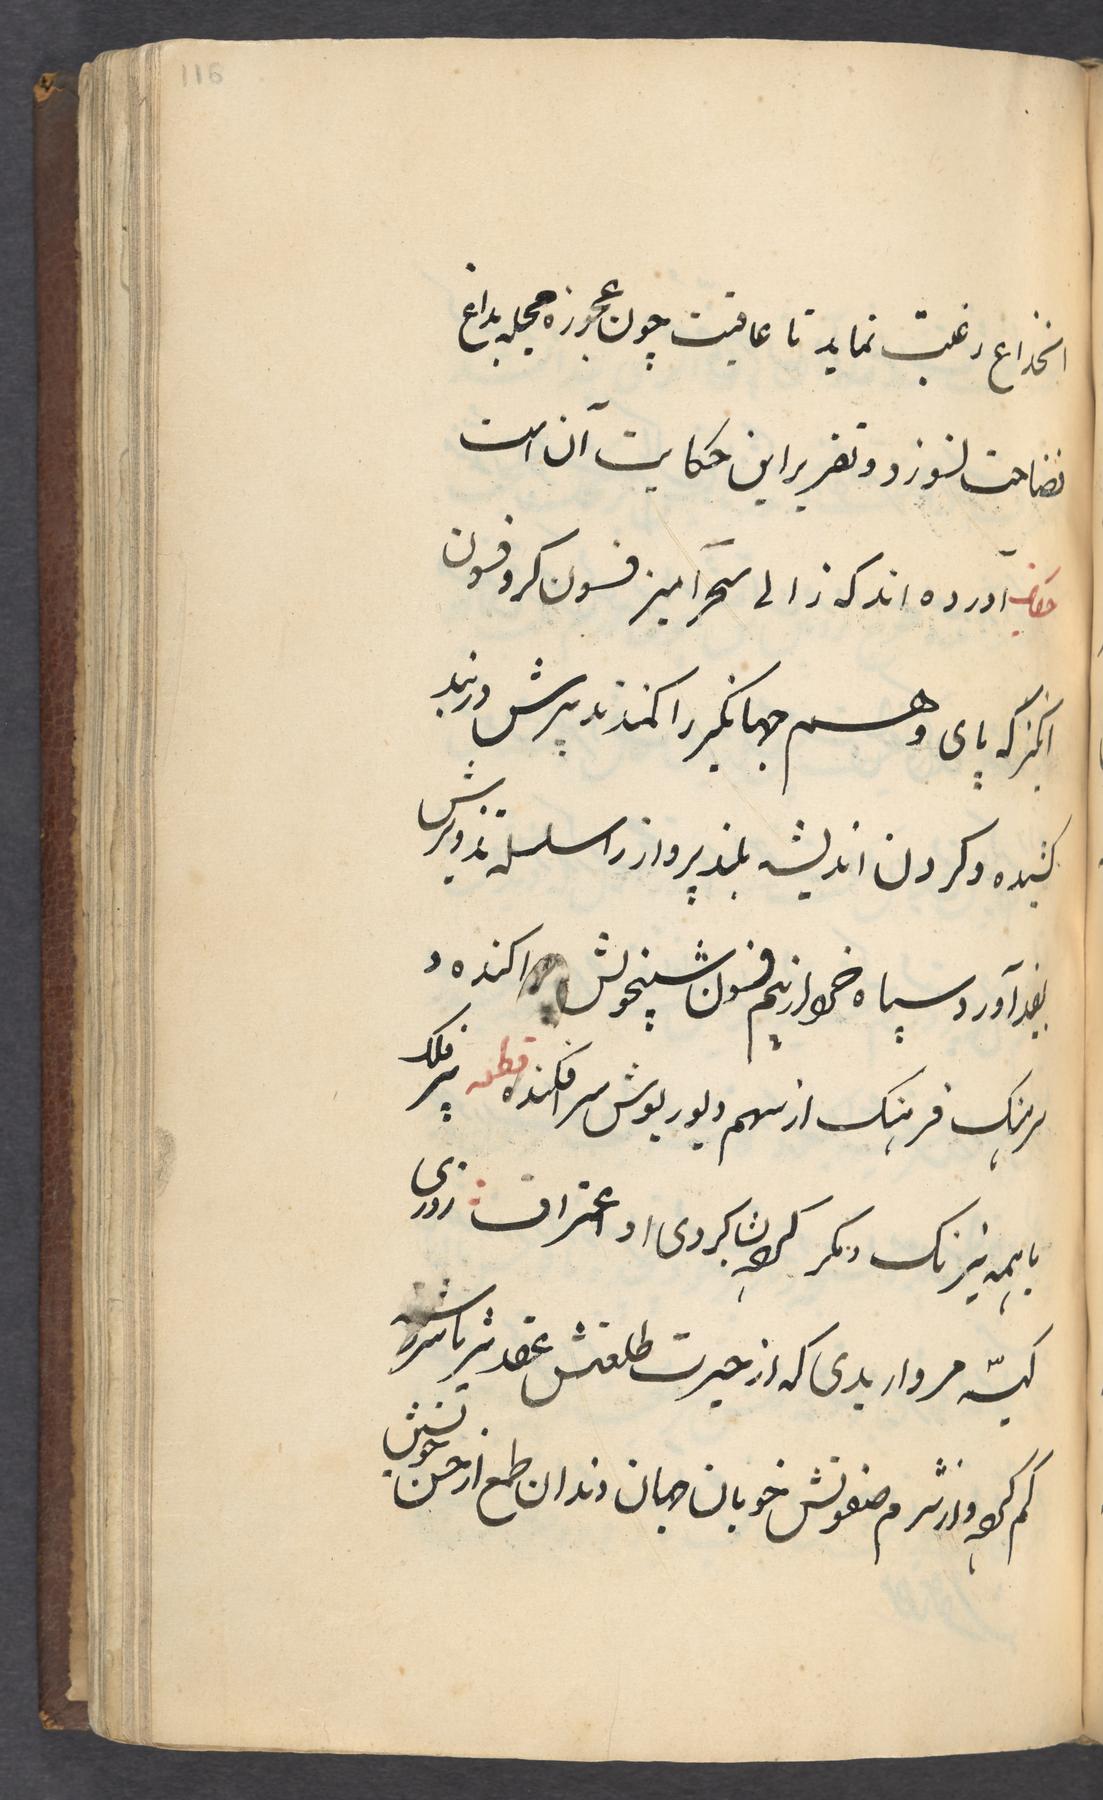 116
انخداع رغبت نماید تا عاقبت چون عجوزه محیله بداغ
فضاحت نسوزد و تقریر این حکایت آن است
حکایت آورده اند که زالی سحرآمیز فسون کر و فسون
انکیز که پای وهم جهانکیر را کمند تدبیرش در بند
کشیده و کردن اندیشه بلند پرواز را سلسله تذویرش
بقید آورد و سپاه خرد از بیم فسون شبیخونش پراکنده و
سرهنک فرهنک از سهم دیو ریوش سر افکنده قطعه پیر فلک
با همه نیرنک و مکر کرده بشاکردی او اعتراف روزی
کیسه مرواریدی که از حیرت طلعتش عقد ثریا سررشته
کم کرده و از شرم صفوتش خوبان جهان دندان طمع از حسن خویش